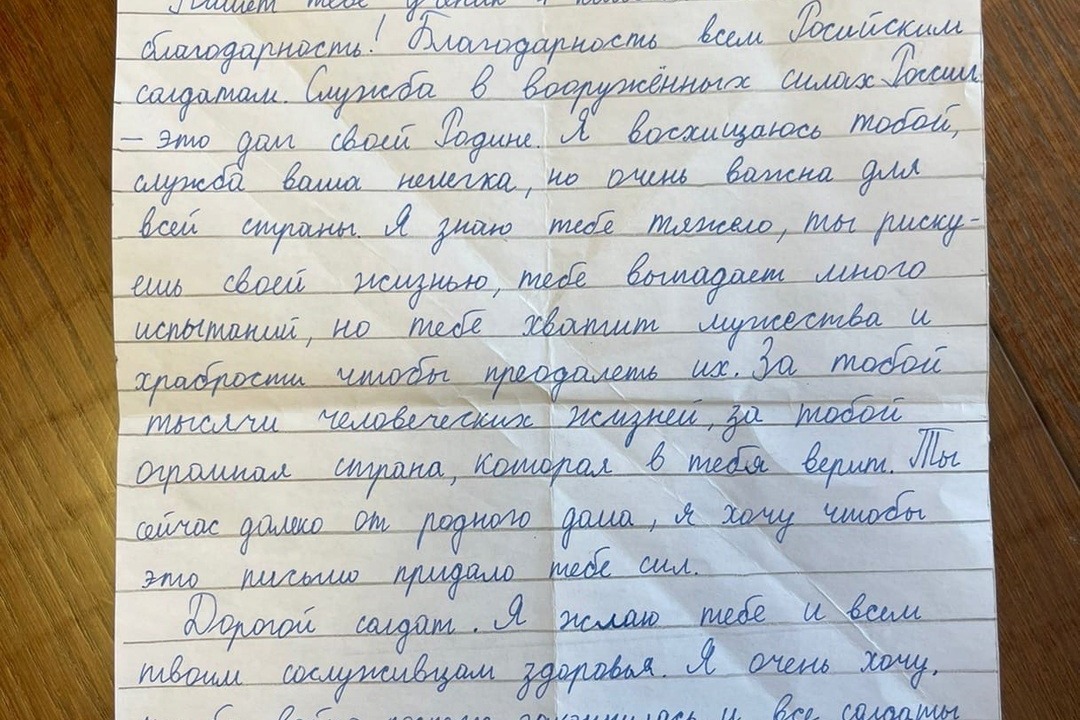 Пишет тебе ученик 4
благодарность! Благодарность всем Росийским
солдатам. Служба в вооружённых силах России
– это долг своей Родине. Я восхищаюсь тобой,
служба ваша нелегка, но очень важна для
всей страны. Я знаю тебе тяжело, ты риску-
ешь своей жизнью, тебе выпадает много
испытаний, но тебе хватит мужества и
храбрости чтобы преодалеть их. За тобой
тысячи человеческих жизней, за тобой
огромная страна, которая в тебя верит. Ты
сейчас далеко от родного дома, я хочу чтобы
это письмо придало тебе сил.
Дорогой солдат. Я желаю тебе и всем
твоим сослуживцам здоровья. Я очень хочу,
закончилась и все солдаты